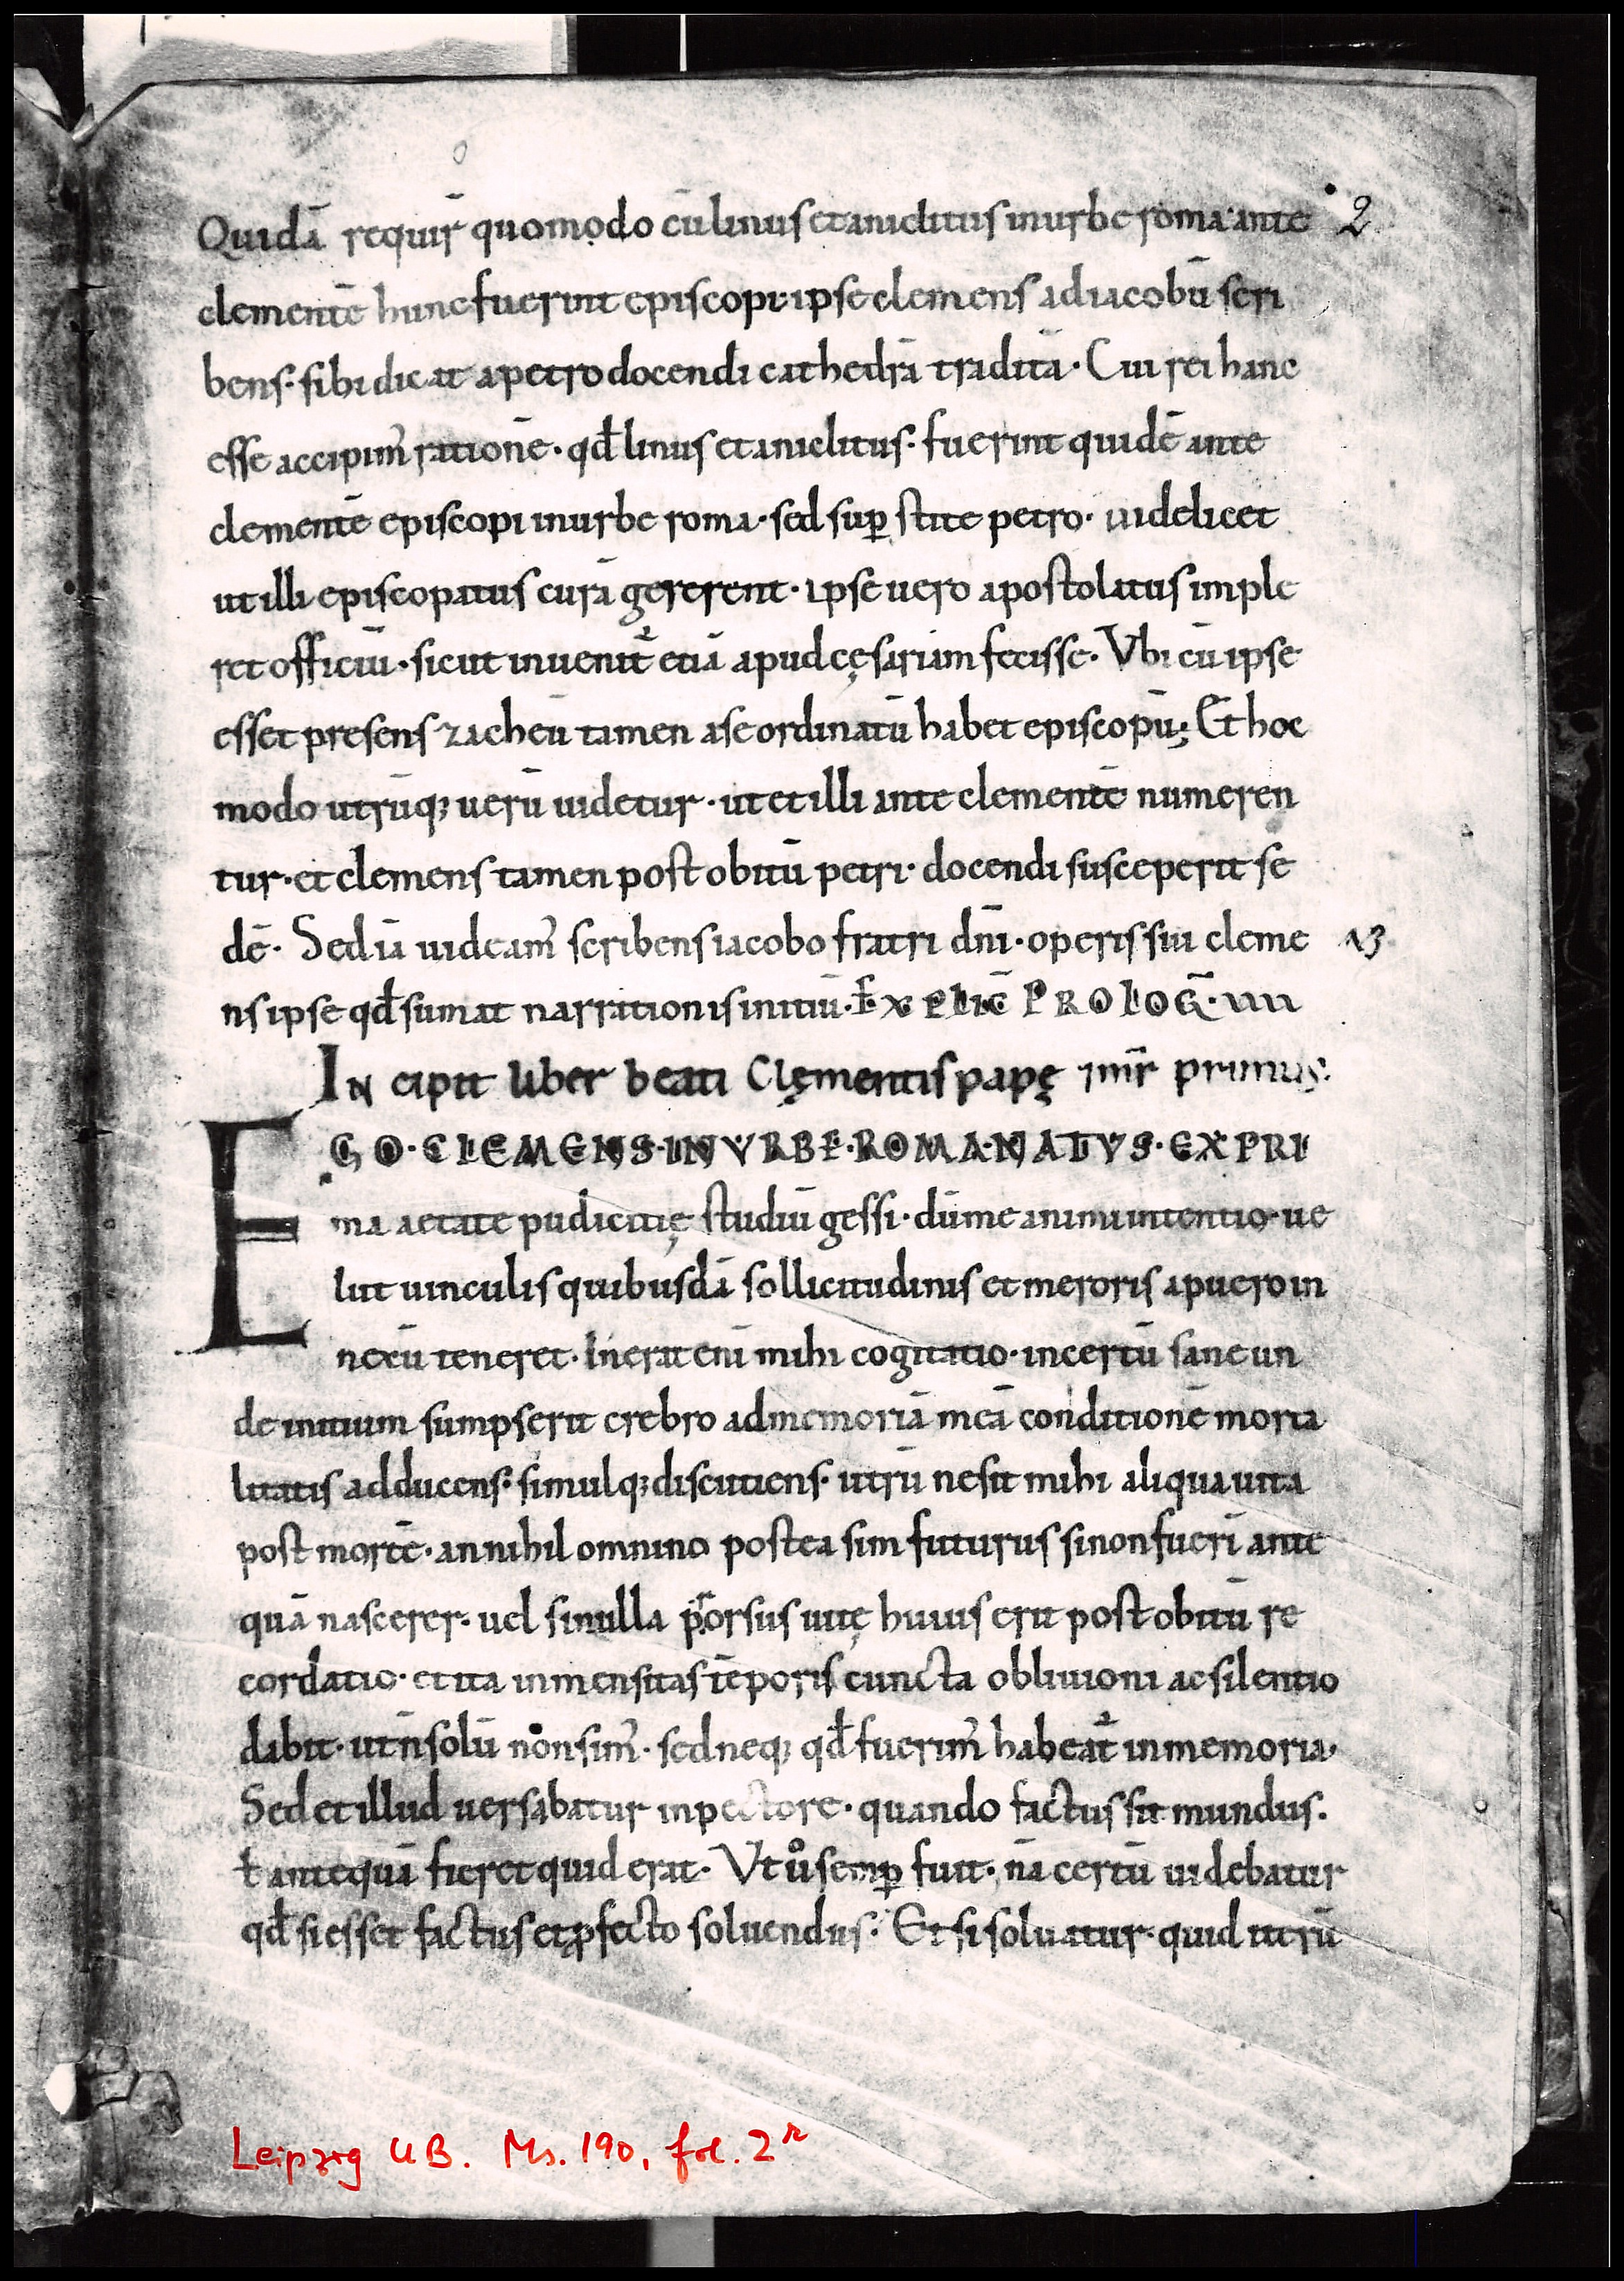 Quidā requir̄ quomodo cū linus et aniclitus in urbe roma ante 2
clementē hunc fuerint episcopi· ipse clemens ad iacobū scri
bens· sibi dicat a petro docendi cathedrā traditā· Cui rei hanc
esse accipim᷒ rationē· qđ linus et aniclitus· fuerint quidē ante
clementē episcopi in urbe roma· sed suꝑstite petro· uidelicet
ut illi episcopatus curā gererent· ipse uero apostolatus imple
ret officiū· sicut inuenit᷑ etiā apud cęsariam fecisse· Vbi cū ipse
esset presens zacheū tamen a se ordinatū habet episcopū; Et hoc
modo utrūq; uerū uidetur· ut et illi ante clementē numeren
tur· et clemens tamen post obitū petri· docendi susceperit se
dē· Sed iā uideam᷒ scribens iacobo fratri dn̄i· operis sui cleme 13
ns ipse qđ sumat narrationis initiū· EXPLIC̄ PROLOḠ· IIII
IN cipit liber beati Clęmentis papę
EGO· CLEMENS· IN VRBE· ROMA· NATVS· EX PRI
ma aetate pudicitię studiū gessi· dū me animi intentio· ue
lut uinculis quibusdā sollicitudinis et meroris a puero in
nexū teneret· Inerat enī mihi cogitatio· incertū sane un
de initium sumpserit crebro ad memoriā meā conditionē morta
litatis adducens· simulq; discutiens· utrū ne sit mihi aliqua uita
post mortē· an nihil omnino postea sim futurus si non fueri ante
quā nascerer· uel si nulla prorsus uitę huius erit post obitū re
cordatio· et ita inmensitas tēporis cuncta obliuioni ac silentio
dabit· ut n̄ solū non sim᷒· sed neq; qđ fuerim᷒ habeat᷑ in memoria·
Sed et illud uersabatur in pectore· quando factus sit mundus·
ł antequā fieret quid erat· Vtͦ ů semꝑ fuit· nā certū uidebatur
qđ si esset factus et ꝓfecto soluendus· Et si soluatur· quid utrū
Leipzig UB. Ms. 190, fol. 2r